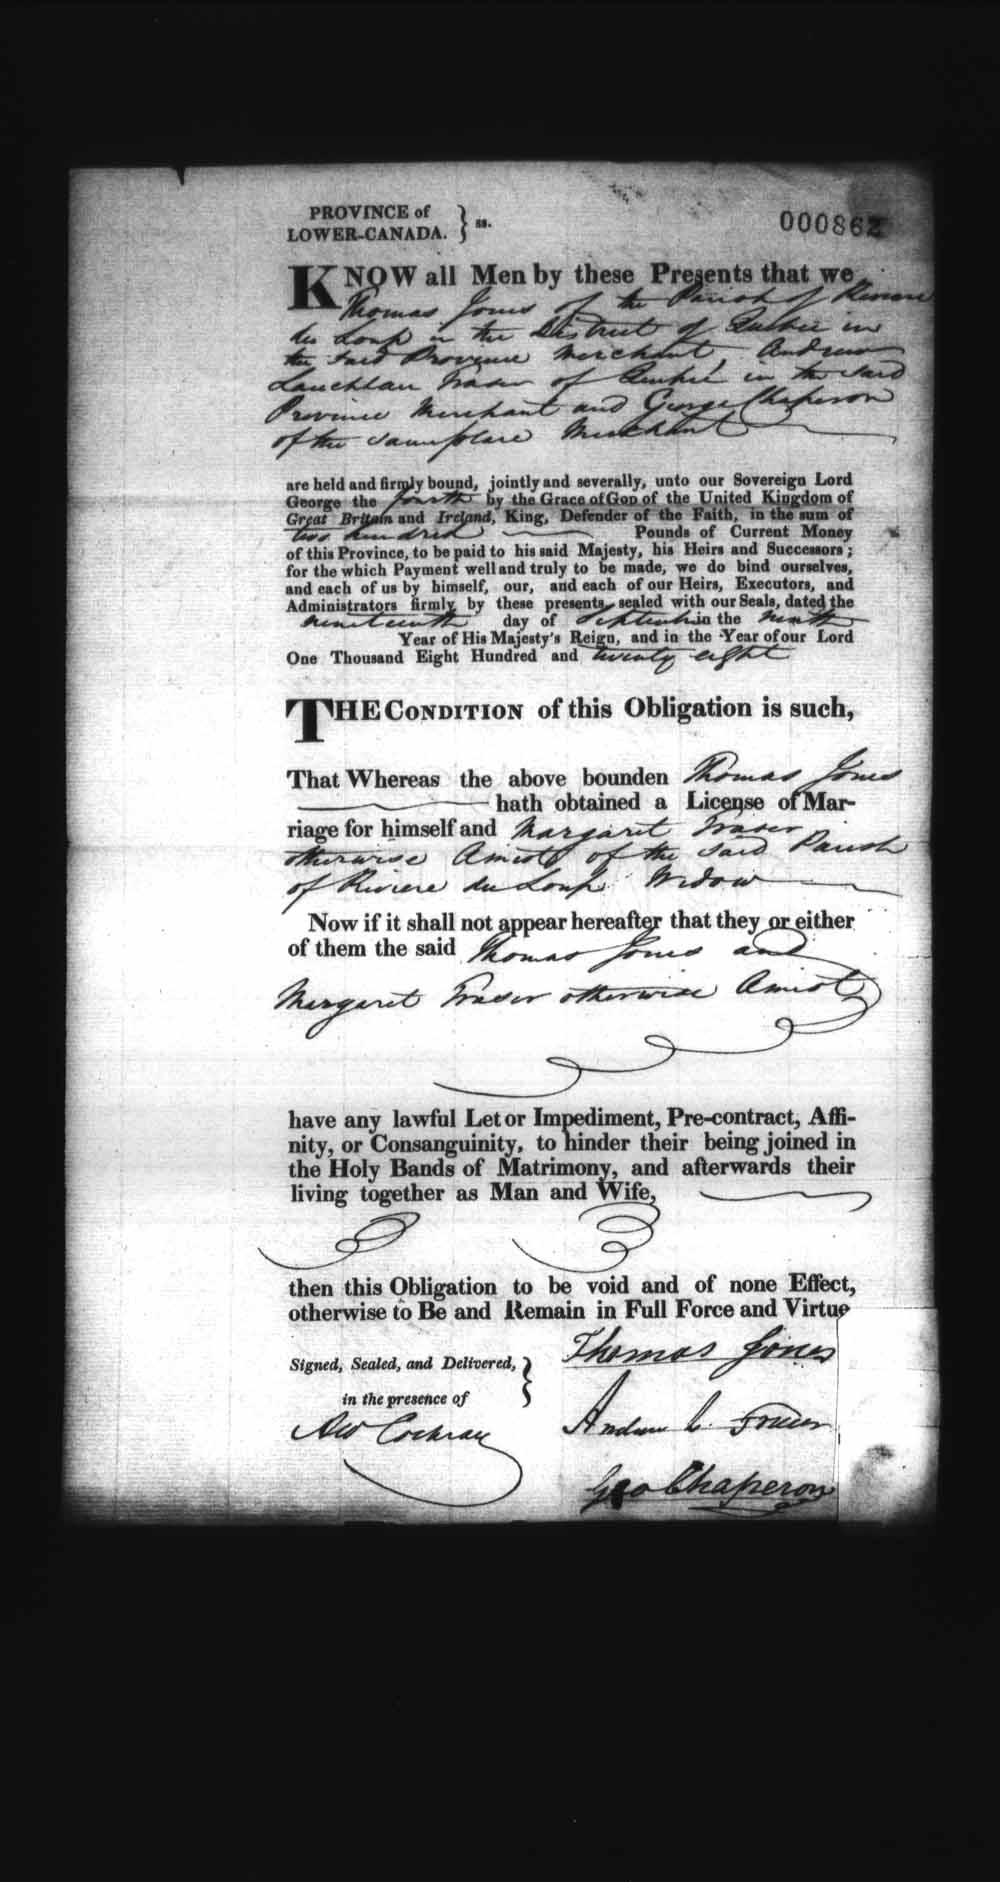 PROVINCE of
LOWER-CANADA. } ss.
000862
KNOW all Men by these Presents that we
Thomas Jones of the Parish of Riviere
du Loup in the District of Quebec in
the said Province Merchant, Andrew
Lauchlan Fraser of Quebec in the said
Province Merchant and George Chaperon
of the same place Merchant
are held and firmly bound, jointly and severally, unto our Sovereign Lord
George the fourth by the Grace of GOD of the United Kingdom of
Great Britain and Ireland, King, Defender of the Faith, in the sum of
two hundred Pounds of Current Money
of this Province, to be paid to his said Majesty, his Heirs and Successors;
for the which Payment well and truly to be made, we do bind ourselves,
and each of us by himself, our, and each of our Heirs, Executors, and
Administrators firmly by these presents, sealed with our Seals, dated the
nineteenth day of September in the ninth
Year of His Majesty's Reign, and in the Year of our Lord
One Thousand Eight Hundred and twenty eight
THE CONDITION of this Obligation is such,
That Whereas the above bounden Thomas Jones
hath obtained a License of Mar-
riage for himself and Margaret Fraser
otherwise Amiot of the said Parish
of Riviere du Loup Widow
Now if it shall not appear hereafter that they or either
of them the said Thomas Jones and
Margaret Fraser otherwise Amiot
have any lawful Let or Impediment, Pre-contract, Affi-
nity, or Consanguinity, to hinder their being joined in
the Holy Bands of Matrimony, and afterwards their
living together as Man and Wife,
then this Obligation to be void and of none Effect,
otherwise to Be and Remain in Full Force and Virtue
Signed, Sealed, and Delivered, }
in the presence of
Thomas Jones
Aw Cochran
Andrew L. Fraser
Geo Chaperon